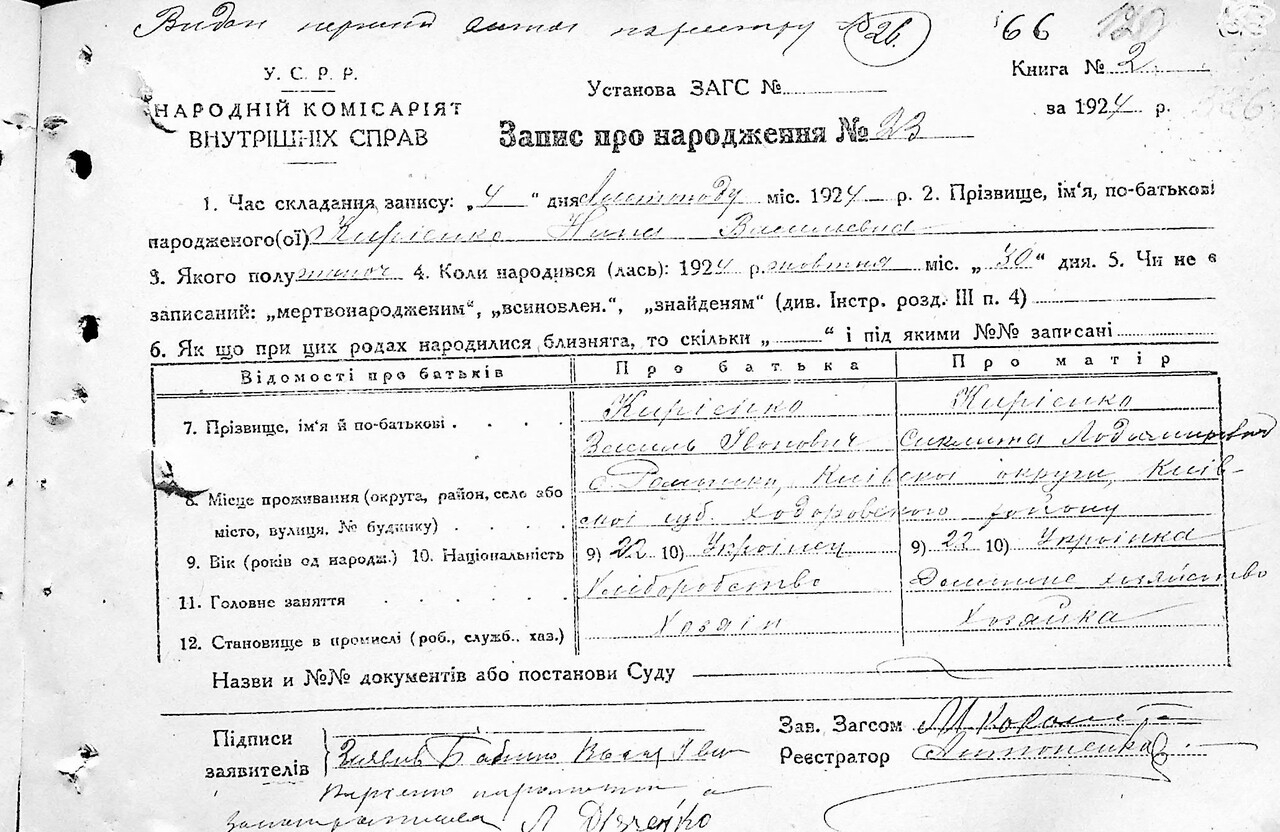 Видан перший витяг по реєстру № 26.
66
120
У. С. Р. Р.
НАРОДНІЙ КОМІСАРІЯТ
ВНУТРІШНІХ СПРАВ
Установа ЗАГС №
Книга № 2
за 1924 р.
Запис про народження № 23
1. Час складання запису: „4“ дня листопаду міс. 1924 р. 2. Прізвище, ім‘я, по-батькові
народженого(ої) Кирієнко Нина Василиевна
3. Якого полу жіноч 4. Коли народився (лась): 1924 р. жовтня міс. „30“ дня. 5. Чи не є
записаний: „мертвонародженим“, „всиновлен.“, „знайденям“ (див. Інстр. розд. III п. 4)
6. Як що при цих родах народилися близнята, то скільки „ “ і під якими №№ записані
Відомості про батьків
Про батька
Про матір
7. Прізвище, ім‘я й по-батькові
Кирієнко
Василь Іванович
Кирієнко
8. Місце проживання (округа, район, село або
місто, вулиця, № будинку)
Київскої округи, Київ-
скої губ. Ходоровского району
9. Вік (років од народж.) 10. Національність
9) 22 10) Українец
9) 22 10) Українка
11. Головне заняття
Хліборобство
Домашнє хозяйство
12. Становище в промислі (роб., служб., хаз.)
Хозяін
Хозяйка
Назви и №№ документів або постанови Суду
Підписи
заявителів
Зав. Загсом
Реєстратор Антоненко